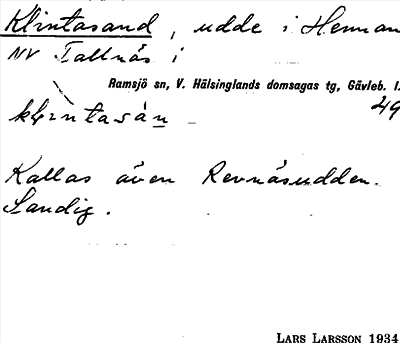 Klintasand, udde i Hennan
NV Tallnäs i
Ramsjö sn, V. Hälsinglands domsagas tg, Gävleb. l.
49
klintasàn –
Kallas även Revnäsudden.
Sandig.
LARS LARSSON 1934